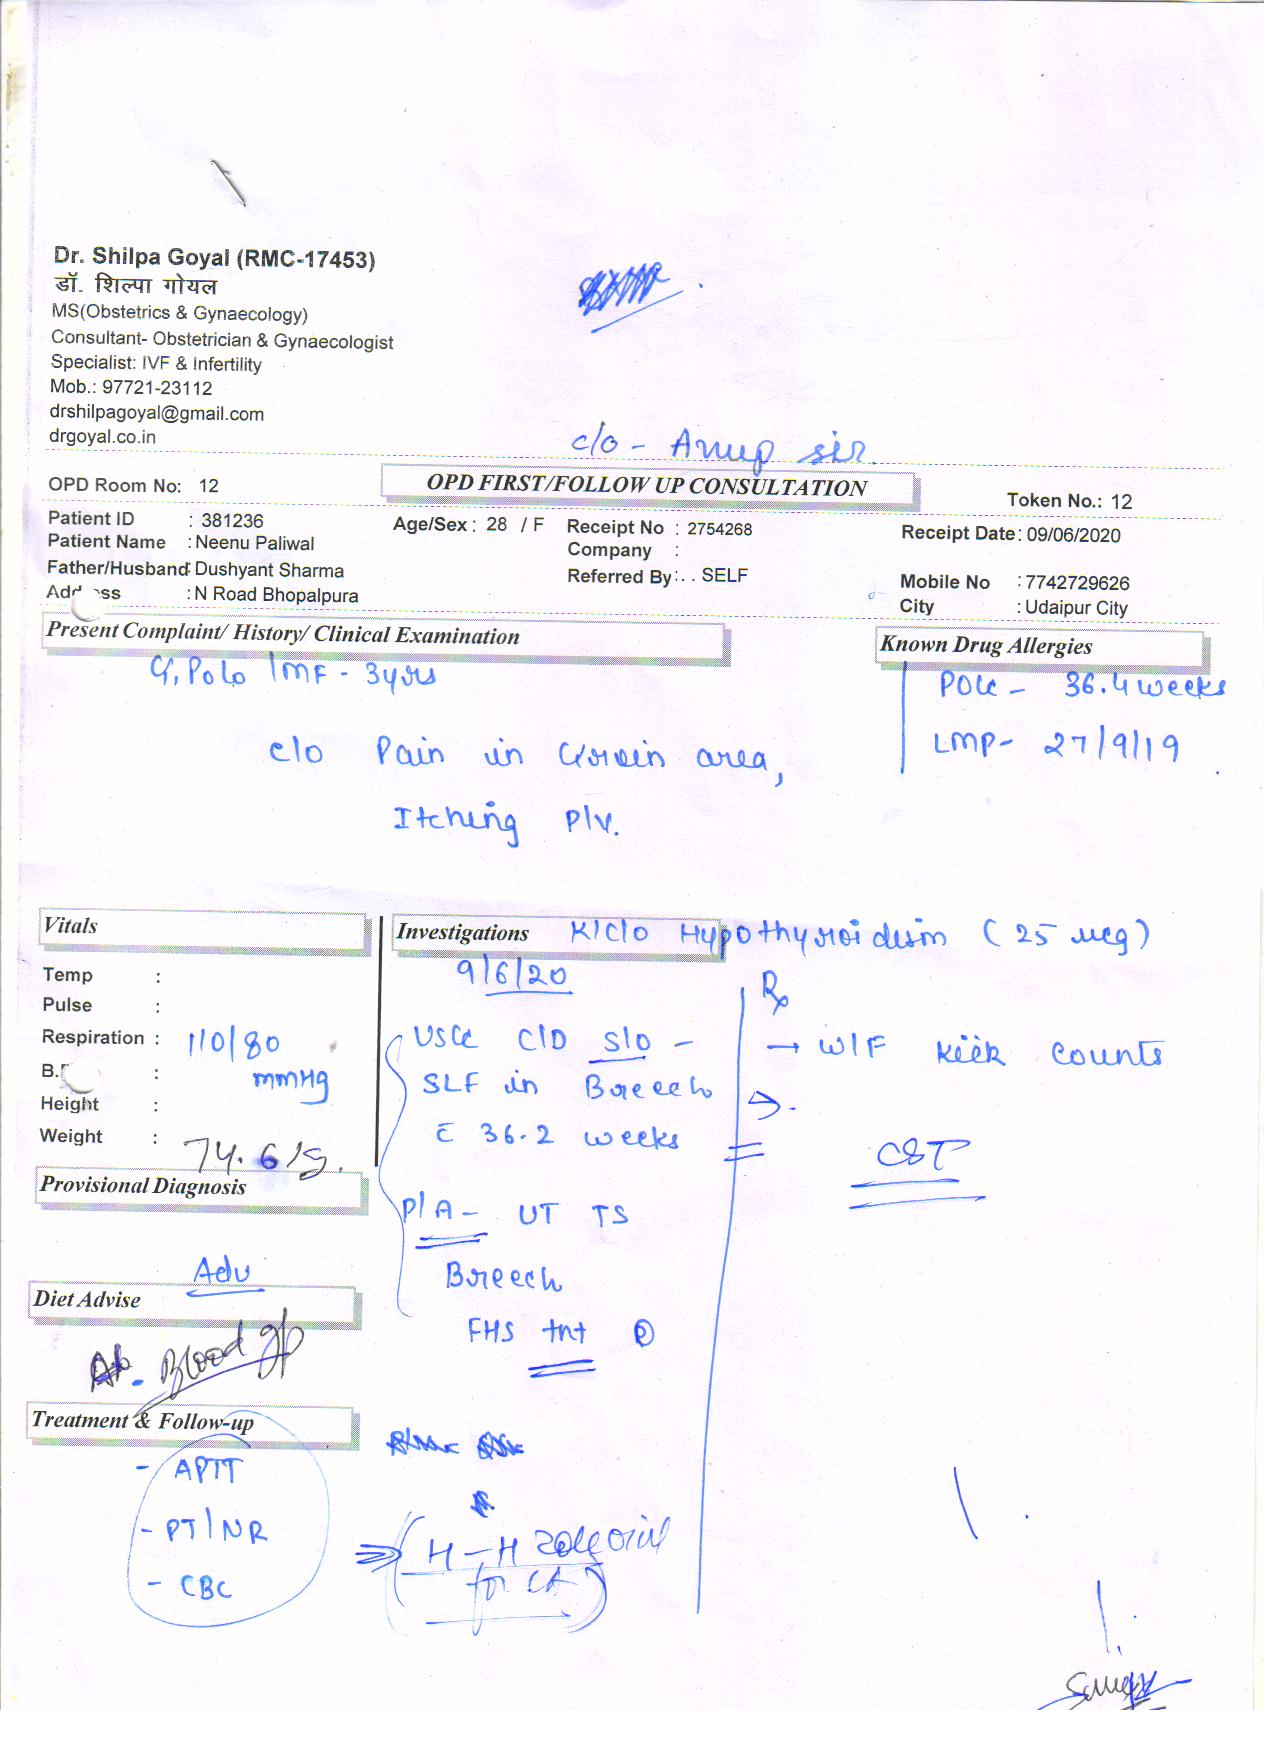 Dr. Shilpa Goyal (RMC-17453)
डॉ. शिल्पा गोयल
MS(Obstetrics & Gynaecology)
Consultant- Obstetrician & Gynaecologist
Specialist: IVF & Infertility
Mob.: 97721-23112
drshilpagoyal@gmail.com
drgoyal.co.in
c/o - Anup sir.
OPD Room No: 12
OPD FIRST/FOLLOW UP CONSULTATION
Token No.: 12
Patient ID : 381236
Age/Sex : 28 / F
Receipt No : 2754268
Receipt Date : 09/06/2020
Patient Name : Neenu Paliwal
Company :
Father/Husband : Dushyant Sharma
Referred By : . . SELF
Mobile No : 7742729626
Address : N Road Bhopalpura
City : Udaipur City
Present Complaint/ History/ Clinical Examination
Known Drug Allergies
G1P0L0 MF - 3yrs
POG - 36.4 weeks
LMP- 27/9/19
c/o Pain in Groin area,
Itching P/V.
Vitals
Investigations K/C/O Hypothyroidism (25 mcg)
9/6/20
Temp :
Pulse :
Respiration :
110/80
mmHg
B.P :
Height :
Weight : 74.6
USG C/D S/O -
SLF in Breech
c̄ 36.2 weeks
P/A - UT TS
Breech
FHS +nt
Rx
→ W/F Kick Counts
CST
Provisional Diagnosis
Adv
Diet Advise
Blood gp
Treatment & Follow-up
- APTT
- PT/INR
- CBC